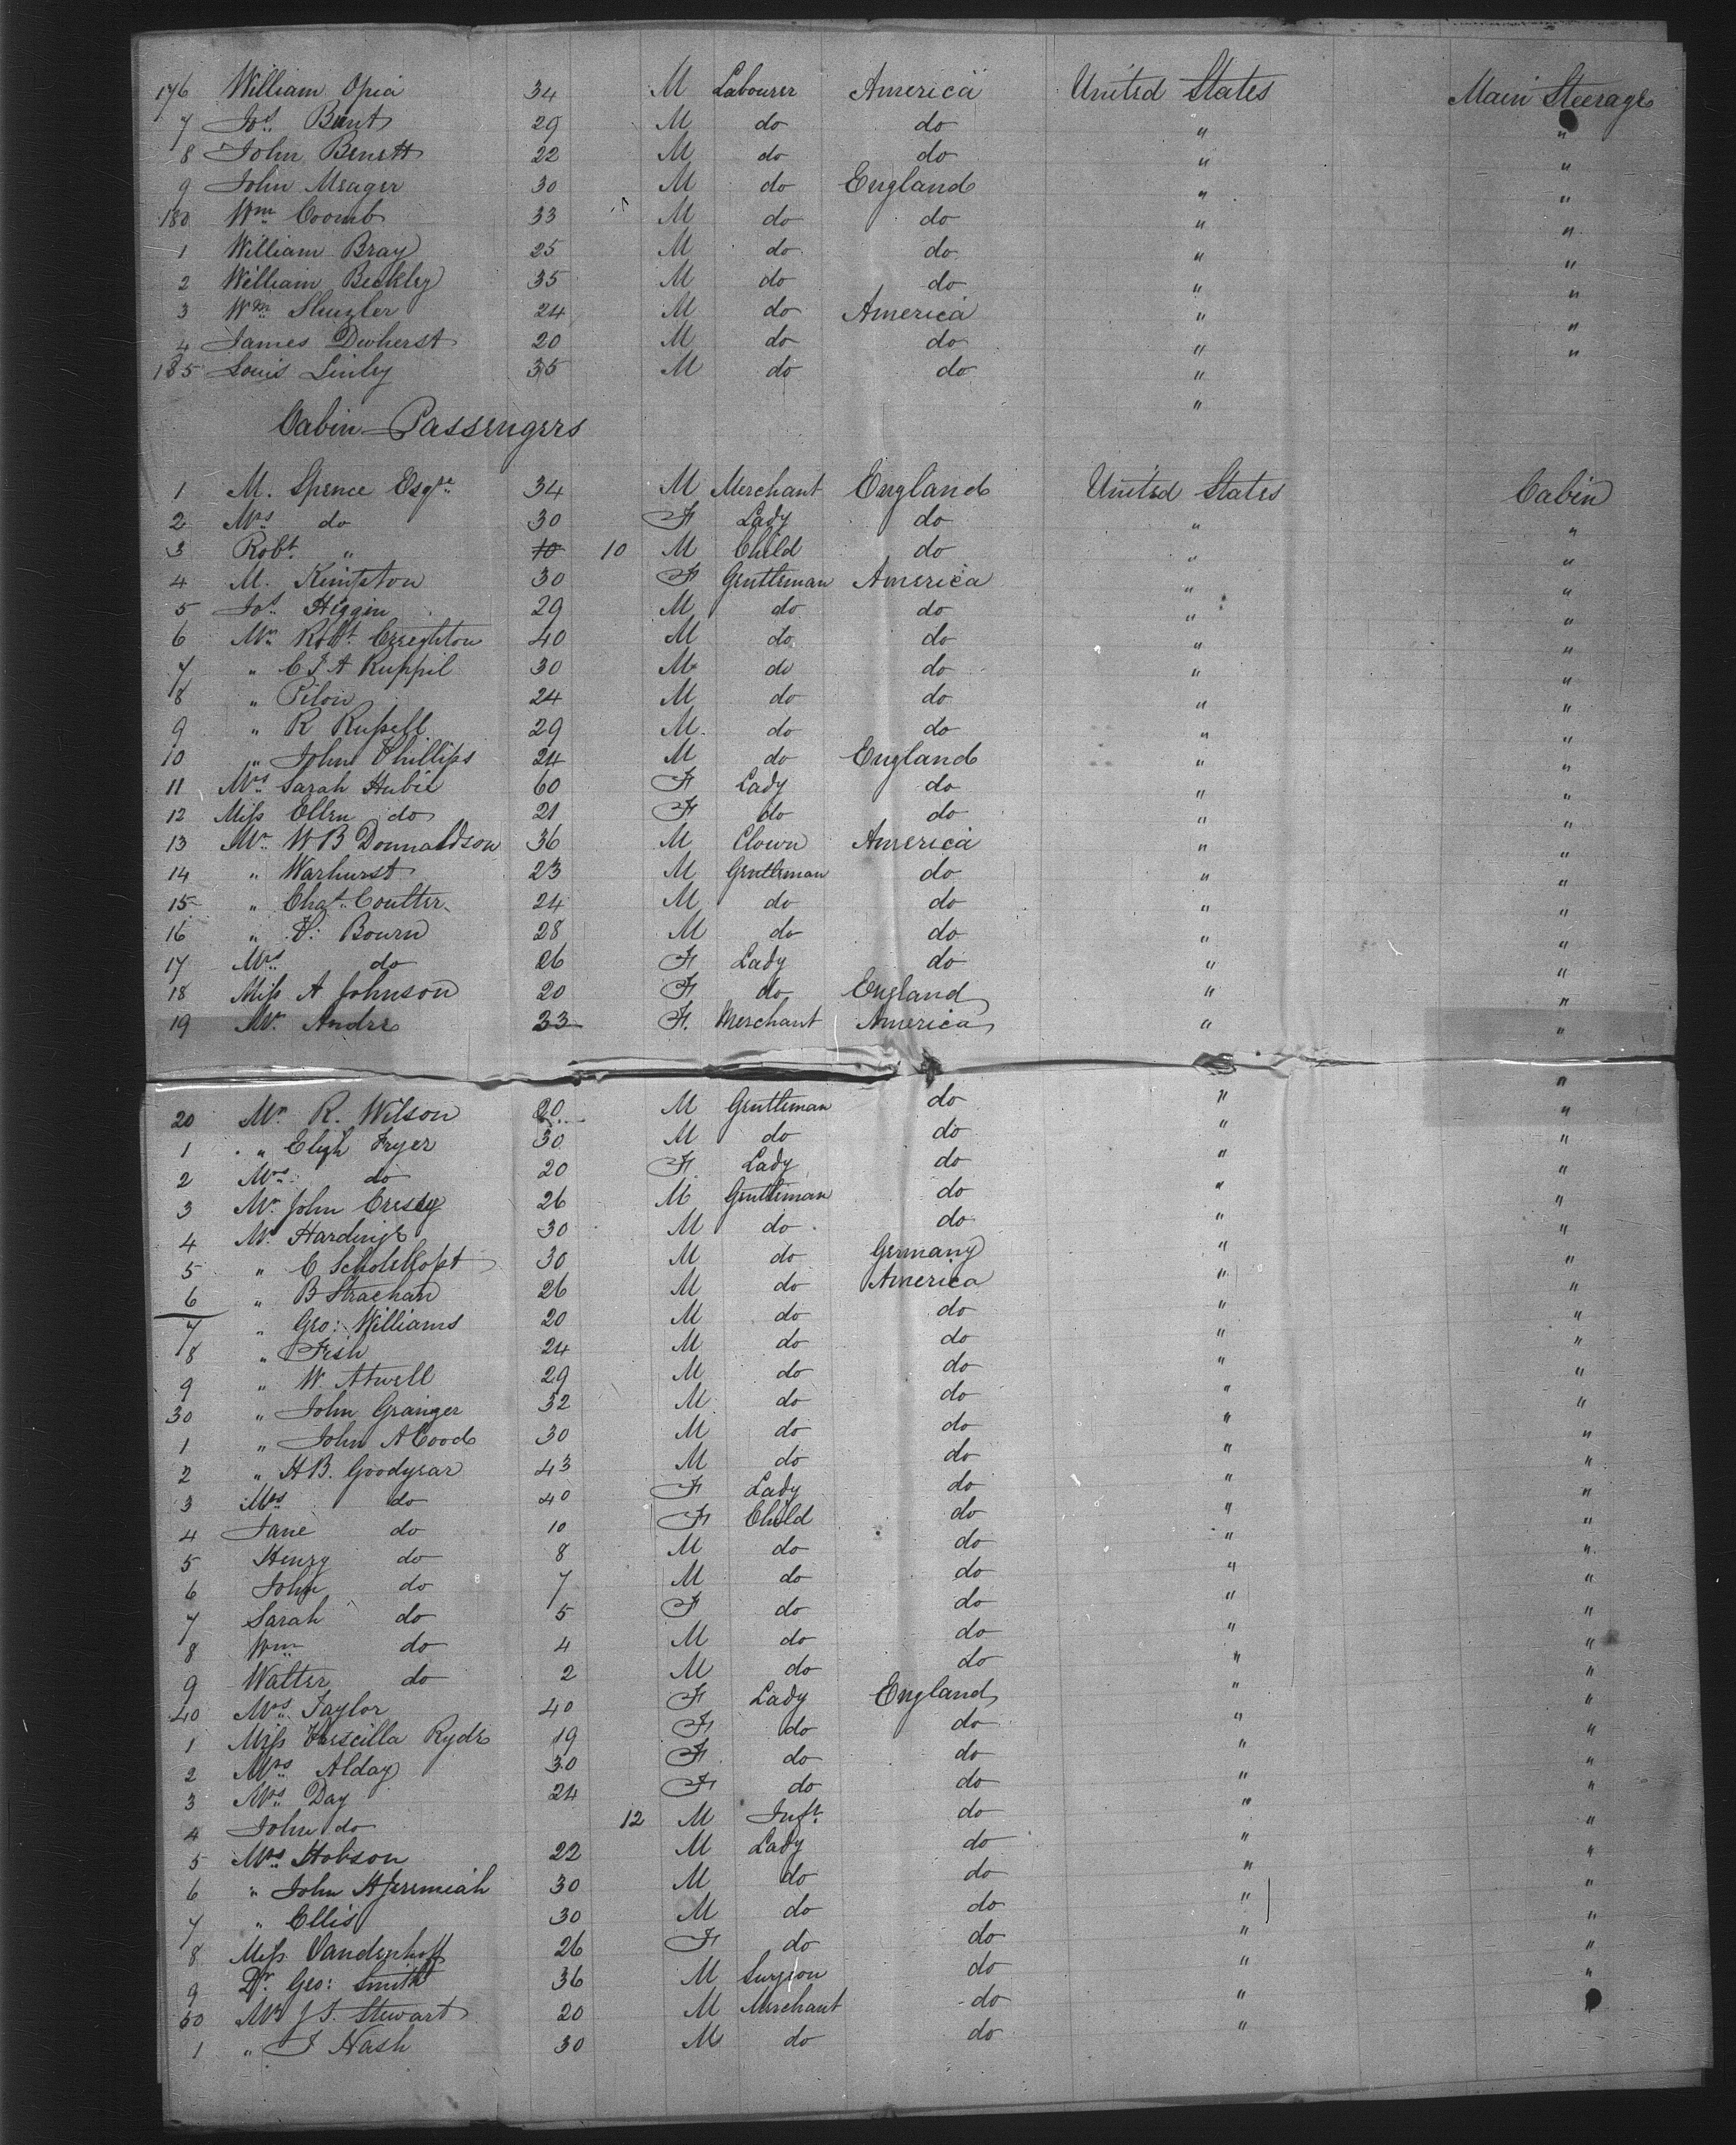 176 William Opia 34 M Labourer America United States Main Steerage
7 Jos. Bunt 29 M do do " "
8 John Benett 22 M do do " "
9 John Meager 30 M do England " "
180 Wm Coomb 33 M do do " "
1 William Bray 25 M do do " "
2 William Beckley 35 M do do " "
3 Wm Shuzler 24 M do America " "
4 James Dewherst 20 M do do " "
185 Louis Linley 35 M do do "
"
Cabin Passengers
1 M. Spence Esqre 34 M Merchant England United States Cabin
2 Mrs do 30 F Lady do " "
3 Robt. " 10 10 M Child do " "
4 M. Kimpton 30 F Gentleman America " "
5 Jos. Higgin 29 M do do " "
6 Mr Robt Creighton 40 M do do " "
7 " C J A Ruppil 30 M do do " "
8 " Pilow 24 M do do " "
9 " R Russell 29 M do do " "
10 " John Phillips 24 M do England " "
11 Mrs Sarah Hubie 60 F Lady do " "
12 Miss Ellen do 21 F do do " "
13 Mr W B Donnaldson 36 M Clown America " "
14 " Warhurst 23 M Gentleman do " "
15 " Chas. Coulter 24 M do do " "
16 " V: Bourn 28 M do do " "
17 Mrs do 26 F Lady do " "
18 Miss A Johnson 20 F do England " "
19 Mr Andre 33 F. Merchant America " "
20 Mr R. Wilson 20 M Gentleman do " "
1 " Elijh Fryer 30 M do do " "
2 Mrs do 20 F Lady do " "
3 Mr John Cressy 26 M Gentleman do " "
4 Mr Hardinge 30 M do do " "
5 " C Scholkopt 30 M do Germany " "
6 " B Strachan 26 M do America " "
7 " Geo: Williams 20 M do do " "
8 " Fish 24 M do do " "
9 " W. Atwell 29 M do do " "
30 " John Granger 32 M do do " "
1 " John A Cood 30 M do do " "
2 " H B. Goodyear 43 M do do " "
3 Mrs do 40 F Lady do " "
4 Jane do 10 F Child do " "
5 Henry do 8 M do do " "
6 John do 7 M do do " "
7 Sarah do 5 F do do " "
8 Wm do 4 M do do " "
9 Walter do 2 M do do " "
40 Mrs Taylor 40 F Lady England " "
1 Miss Prescilla Ryde 19 F do do " "
2 Mrs Alday 30 F do do " "
3 Mrs Day 24 F do do " "
4 John do 12 M Inft. do " "
5 Mrs Hobson 22 M Lady do " "
6 " John H Jeremiah 30 M do do " "
7 " Ellis 30 M do do " "
8 Miss Vandenhoff 26 F do do " "
9 Dr. Geo: Smith 36 M Surgeon do " "
50 Mr J. T. Stewart 20 M Merchant do " "
1 " J Nash 30 M do do "